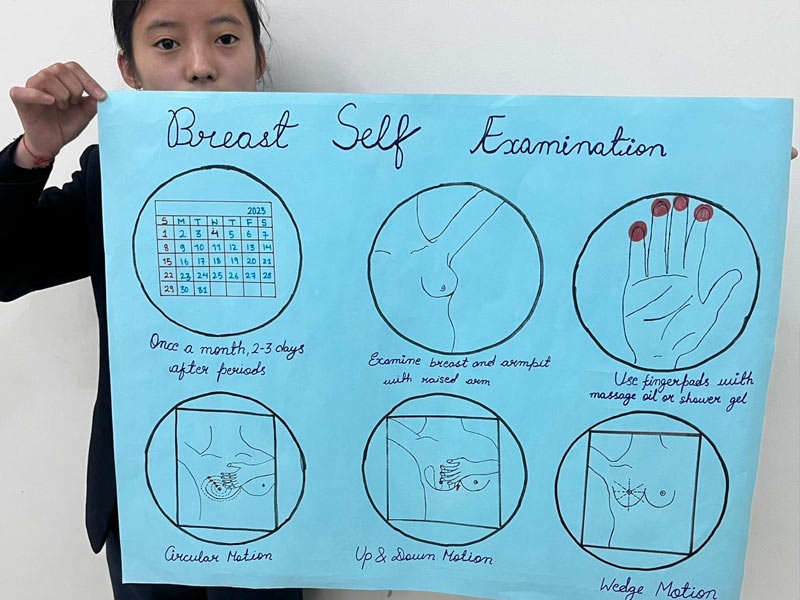 Breast Self Examination
2023
S M T W T F S
1 2 3 4 5 6 7
8 9 10 11 12 13 14
15 16 17 18 19 20 21
22 23 24 25 26 27 28
29 30 31
Once a month, 2-3 days
after periods
Examine breast and armpit
with raised arm
Use fingerpads with
massage oil or shower gel
Circular Motion
Up & Down Motion
Wedge Motion